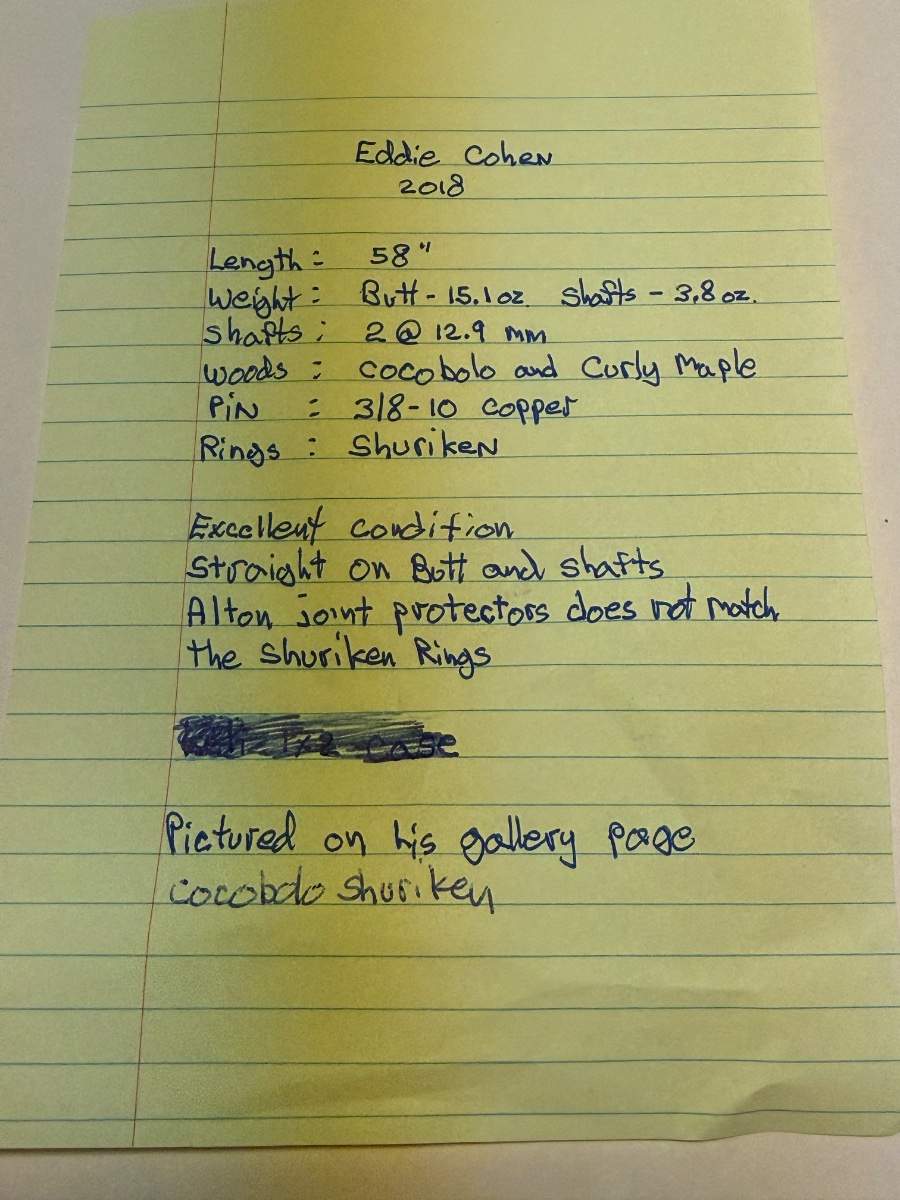 Eddie Cohen
2018
Length : 58"
Weight : Butt - 15.1 oz. Shafts - 3.8 oz.
Shafts : 2 @ 12.9 mm
Woods : Cocobolo and Curly Maple
Pin : 3/8-10 Copper
Rings : Shuriken
Excellent condition
Straight on Butt and shafts
Alton joint protectors does not match
the Shuriken Rings
1x2 case
Pictured on his gallery page
cocobolo shuriken